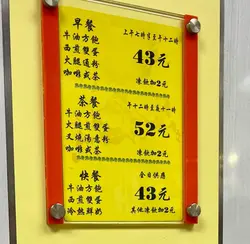 早餐
上午七時半至十二時
牛油方飽
西煎雙蛋
火腿通粉
咖啡或茶
43元
凍飲加2元
茶餐
下午十二時至十一時
牛油方飽
火腿雙蛋
叉燒湯意粉
咖啡或茶
52元
凍飲加2元
快餐
全日供應
牛油方飽
西煎雙蛋
冷熱鮮奶
43元
其他凍飲加2元